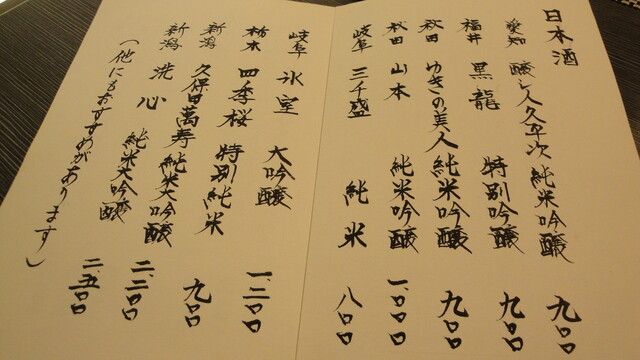 日本酒
愛知 醸し人九平次 純米吟醸 九〇〇
福井 黒龍 特別吟醸 九〇〇
秋田 ゆきの美人 純米吟醸 九〇〇
秋田 山本 純米吟醸 一、〇〇〇
岐阜 三千盛 純米 八〇〇
岐阜 氷室 大吟醸 一、二〇〇
栃木 四季桜 特別純米 九〇〇
新潟 久保田萬寿 純米大吟醸 二、二〇〇
新潟 洗心 純米大吟醸 二、五〇〇
(他にもおすすめがあります)